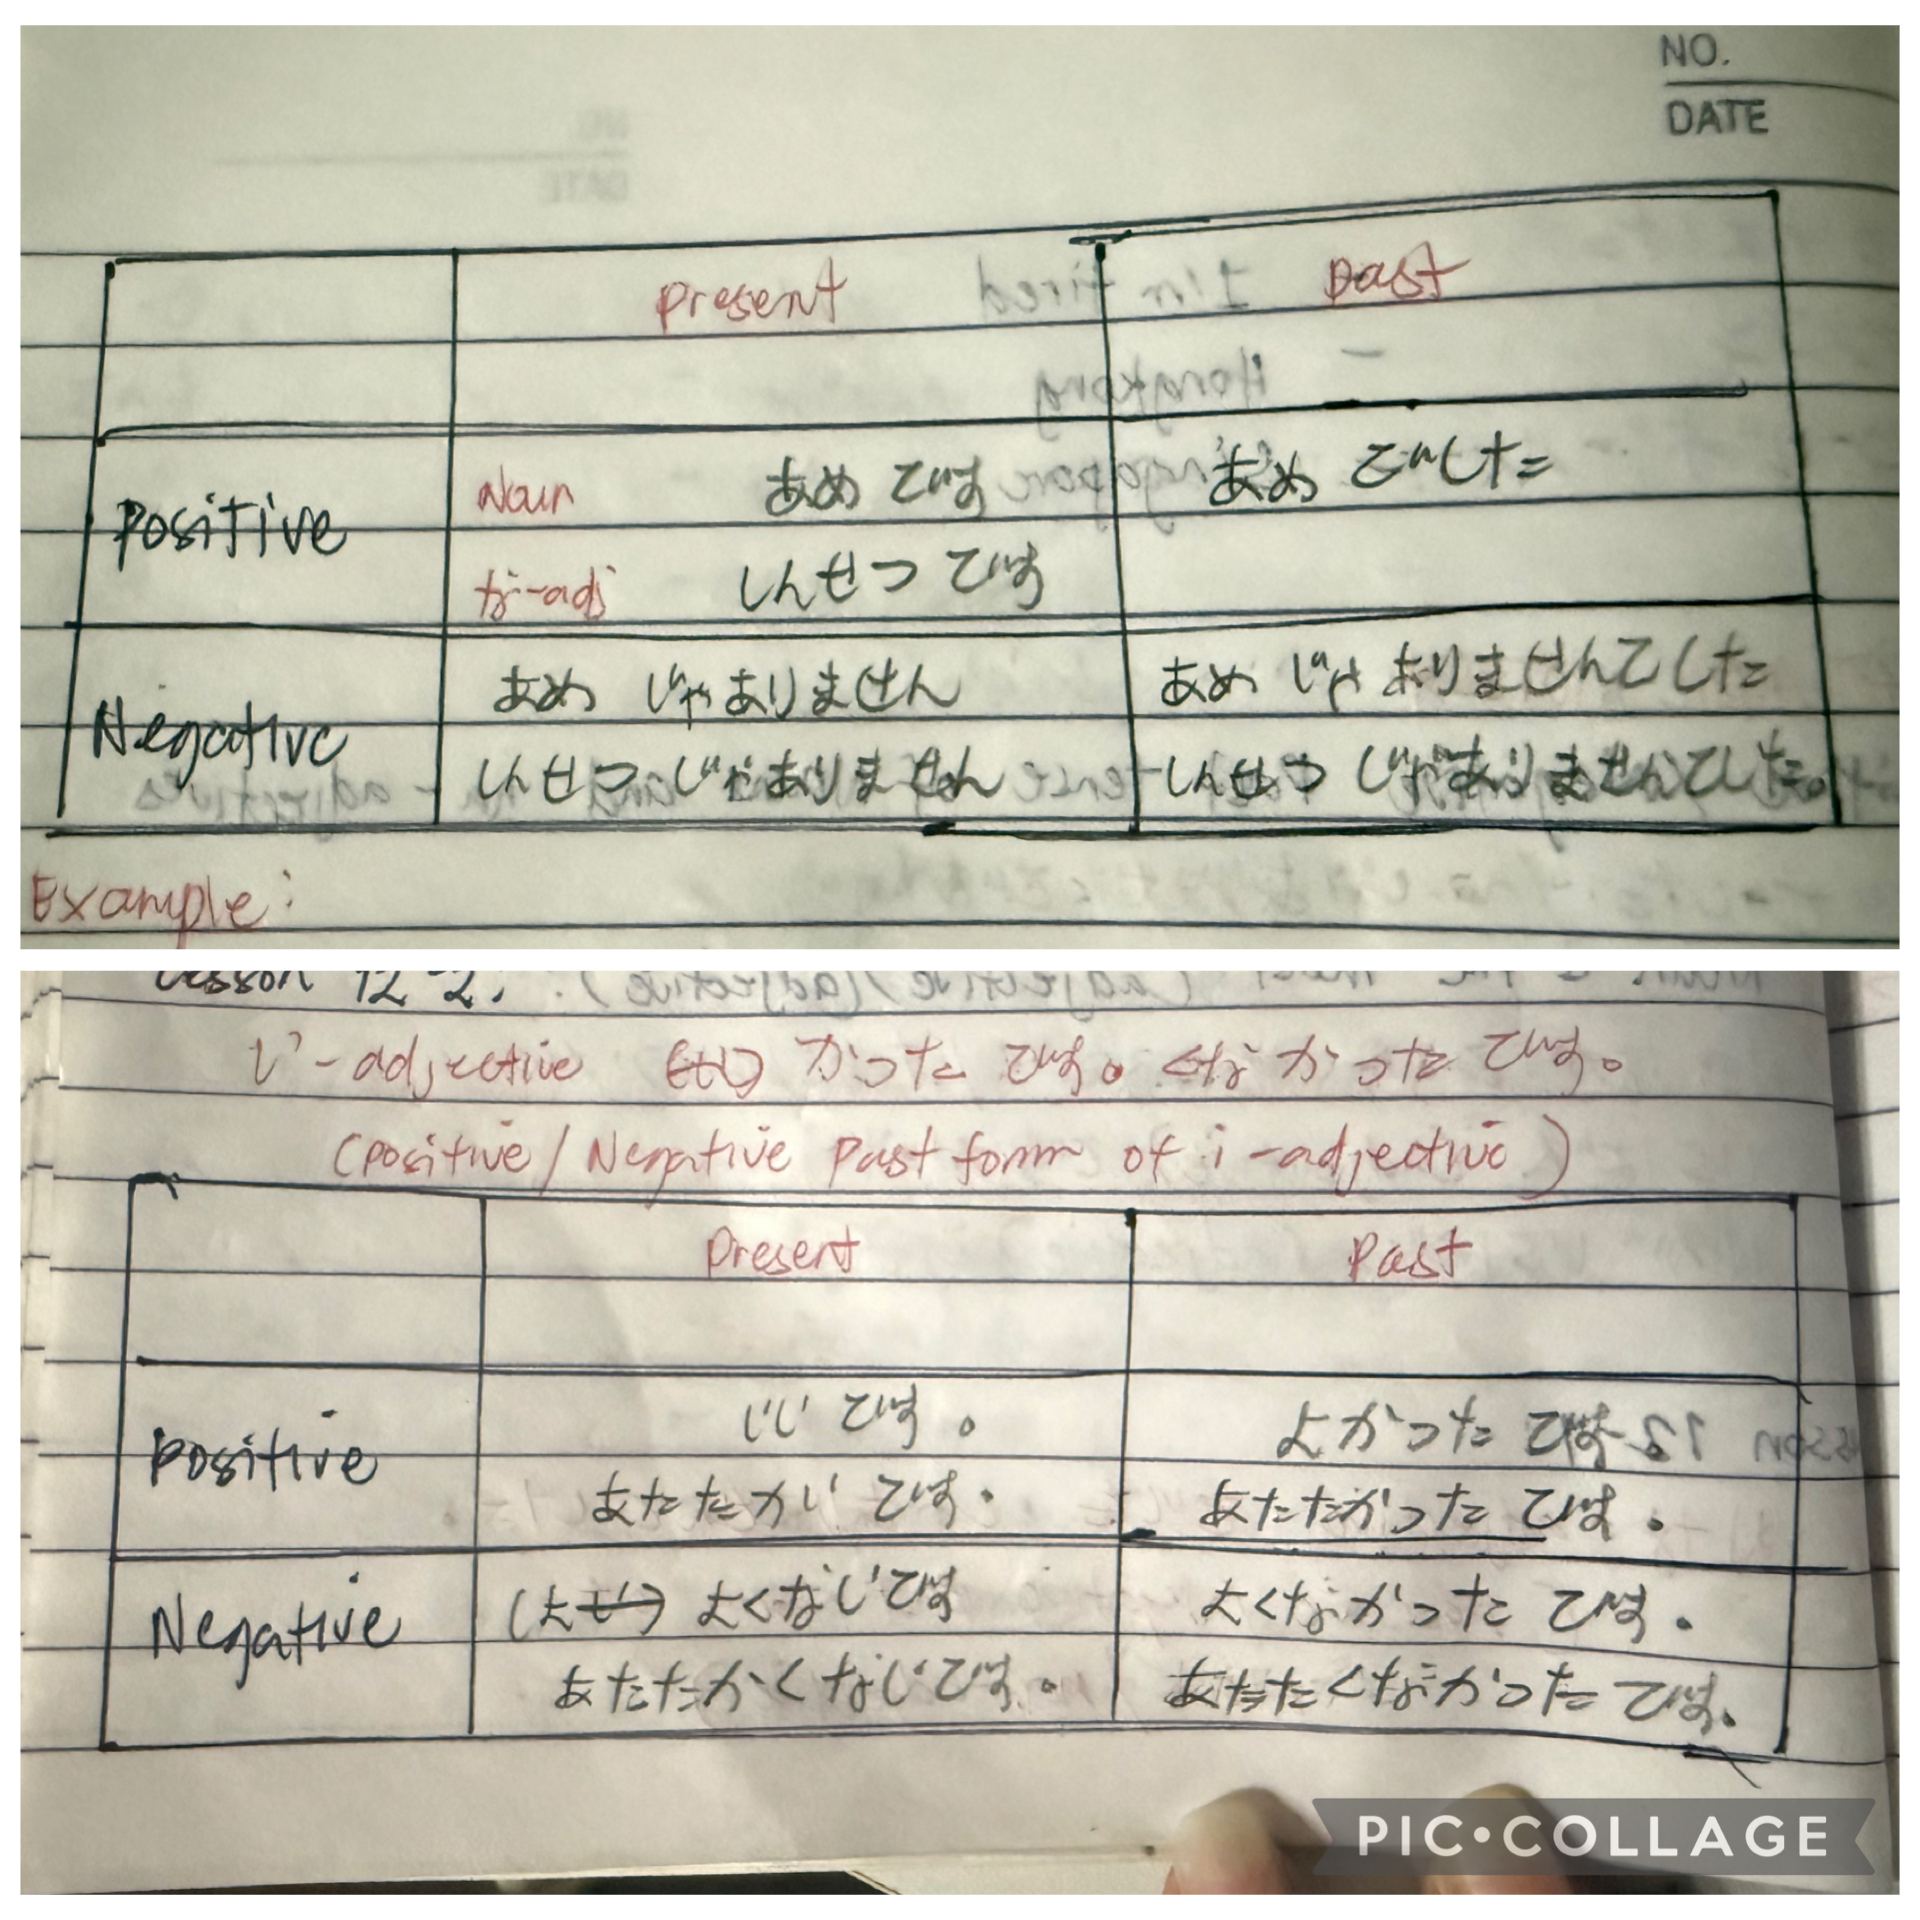 NO.
DATE
Present Past
Positive
Noun あめ です あめ でした
な-adj しんせつ です
Negative
あめ じゃありません あめ じゃ ありませんでした
しんせつ じゃありません しんせつ じゃありませんでした。
Example:
Lesson 12-2:
い-adjective かったです。くなかったです。
(Positive/Negative Past form of i-adjective)
Present Past
Positive
いいです。 よかったです
あたたかいです。 あたたかったです。
Negative
よくないです よくなかったです。
あたたかくないです。 あたたくなかったです。
PIC•COLLAGE